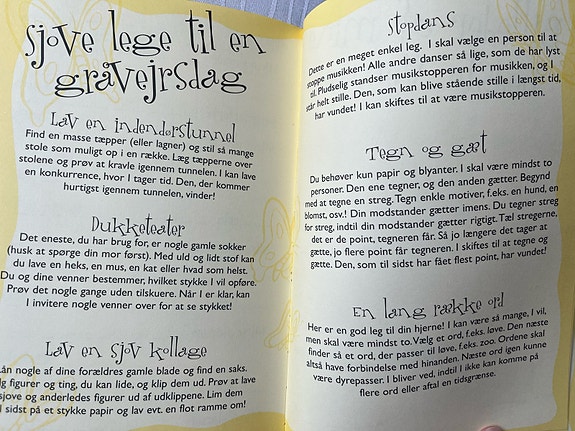 sjove lege til en
gråvejrsdag
Lav en indendørstunnel
Find en masse tæpper (eller lagner) og stil så mange
stole som muligt op i en række. Læg tæpperne over
stolene og prøv at kravle igennem tunnelen. I kan lave
en konkurrence, hvor I tager tid. Den, der kommer
hurtigst igennem tunnelen, vinder!
Dukketeater
Det eneste, du har brug for, er nogle gamle sokker
(husk at spørge din mor først). Med uld og lidt stof kan
du lave en heks, en mus, en kat eller hvad som helst.
Du og dine venner bestemmer, hvilket stykke I vil opføre.
Prøv det nogle gange uden tilskuere. Når I er klar, kan
I invitere nogle venner over for at se stykket!
Lav en sjov kollage
Lån nogle af dine forældres gamle blade og find en saks.
figurer og ting, du kan lide, og klip dem ud. Prøv at lave
sjove og anderledes figurer ud af udklippene. Lim dem
sidst på et stykke papir og lav evt. en flot ramme om!
Stopdans
Dette er en meget enkel leg. I skal vælge en person til at
stoppe musikken! Alle andre danser så lige, som de har lyst
til. Pludselig standser musikstopperen for musikken, og I
står helt stille. Den, som kan blive stående stille i længst tid,
har vundet! I kan skiftes til at være musikstopperen.
Tegn og gæt
Du behøver kun papir og blyanter. I skal være mindst to
personer. Den ene tegner, og den anden gætter. Begynd
med at tegne en streg. Tegn enkle motiver, f.eks. en hund, en
blomst, osv.! Din modstander gætter imens. Du tegner streg
for streg, indtil din modstander gætter rigtigt. Tæl stregerne,
det er de point, tegneren får. Så jo længere det tager at
gætte, jo flere point får tegneren. I skiftes til at tegne og
gætte. Den, som til sidst har fået flest point, har vundet!
En lang række ord
Her er en god leg til din hjerne! I kan være så mange, I vil,
men skal være mindst to. Vælg et ord, f.eks. løve. Den næste
finder så et ord, der passer til løve, f.eks. zoo. Ordene skal
altså have forbindelse med hinanden. Næste ord igen kunne
være dyrepasser. I bliver ved, indtil I ikke kan komme på
flere ord eller aftal en tidsgrænse.